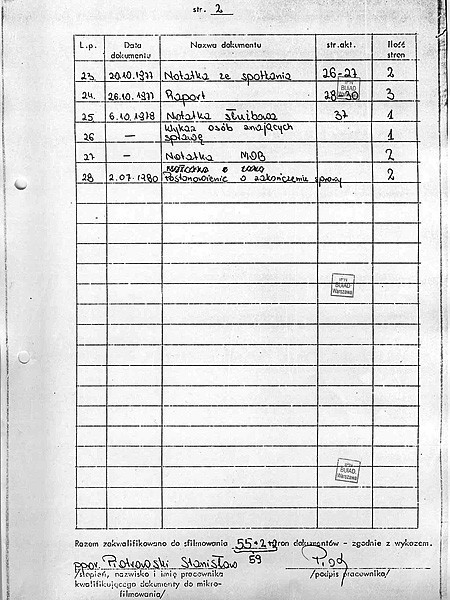 str. 2
L.p. Data dokumentu Nazwa dokumentu str.akt. Ilość stron
23. 20.10.1977 Notatka ze spotkania 26-27 2
24. 26.10.1977 Raport 28-30 3
25 6.10.1978 Notatka służbowa 1
26 — Wykaz osób znających sprawę 1
27 — Notatka 2
28 2.07.1980 Postanowienie o zakończeniu sprawy 2
IPN
BUiAD
Warszawa
IPN
BUiAD
Warszawa
IPN
BUiAD
Razem zakwalifikowano do sfilmowania 55+2+2 stron dokumentów - zgodnie z wykazem.
59
ppor. Piotrowski Stanisław
/stopień, nazwisko i imię pracownika /podpis pracownika/
kwalifikującego dokumenty do mikro-
filmowania/